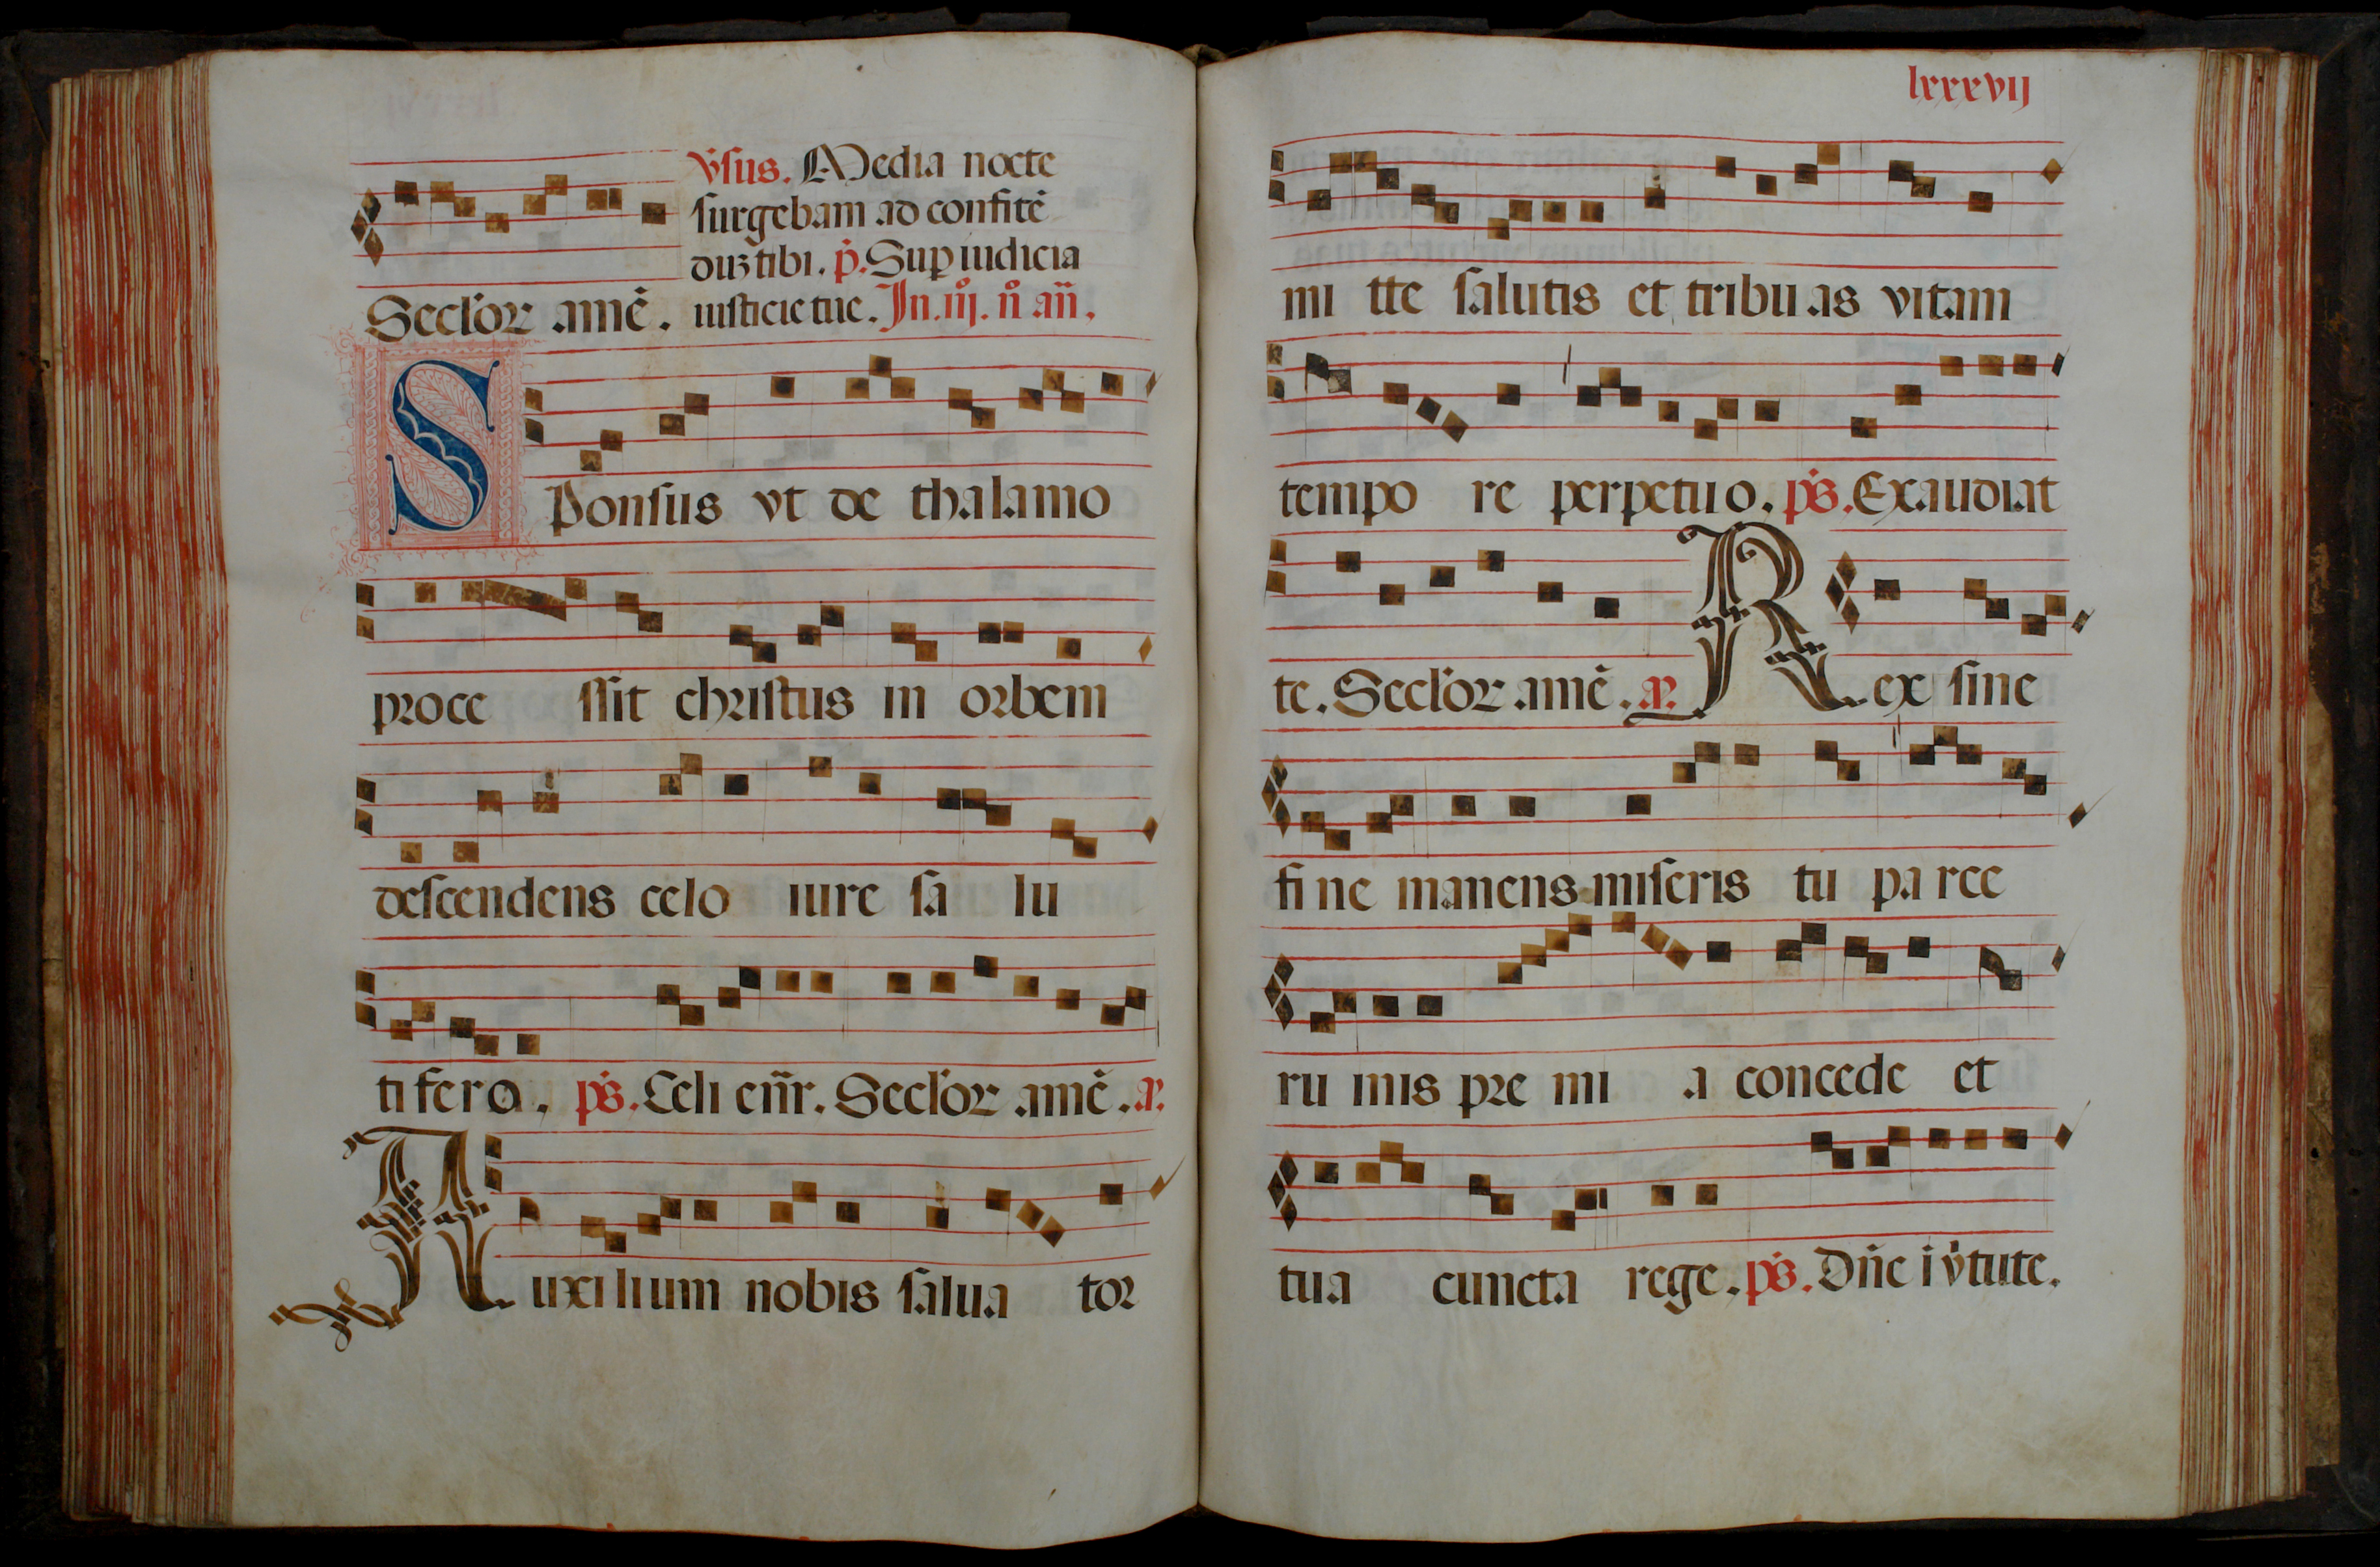 v̇sus. Media nocte
surgebam ad confitē
duʒ tibi. ṗ. Sup iudicia
Seclor amē. iusticie tue. In. iij. n̊ añ.
Sponsus vt de thalamo
proce ssit christus in orbem
descendens celo iure sa lu
ti fero. ps. Celi enr̄. Seclor amē. a.
Auxilium nobis salua tor
lxxxvij
mi tte salutis et tribuas vitam
tempo re perpetuo. ps. Exaudiat
te. Seclor amē. a. Rex sine
fine manens miseris tu parce
ru inis pre mi a concede et
tua cuncta rege. ps. Dñe i v̇tute.